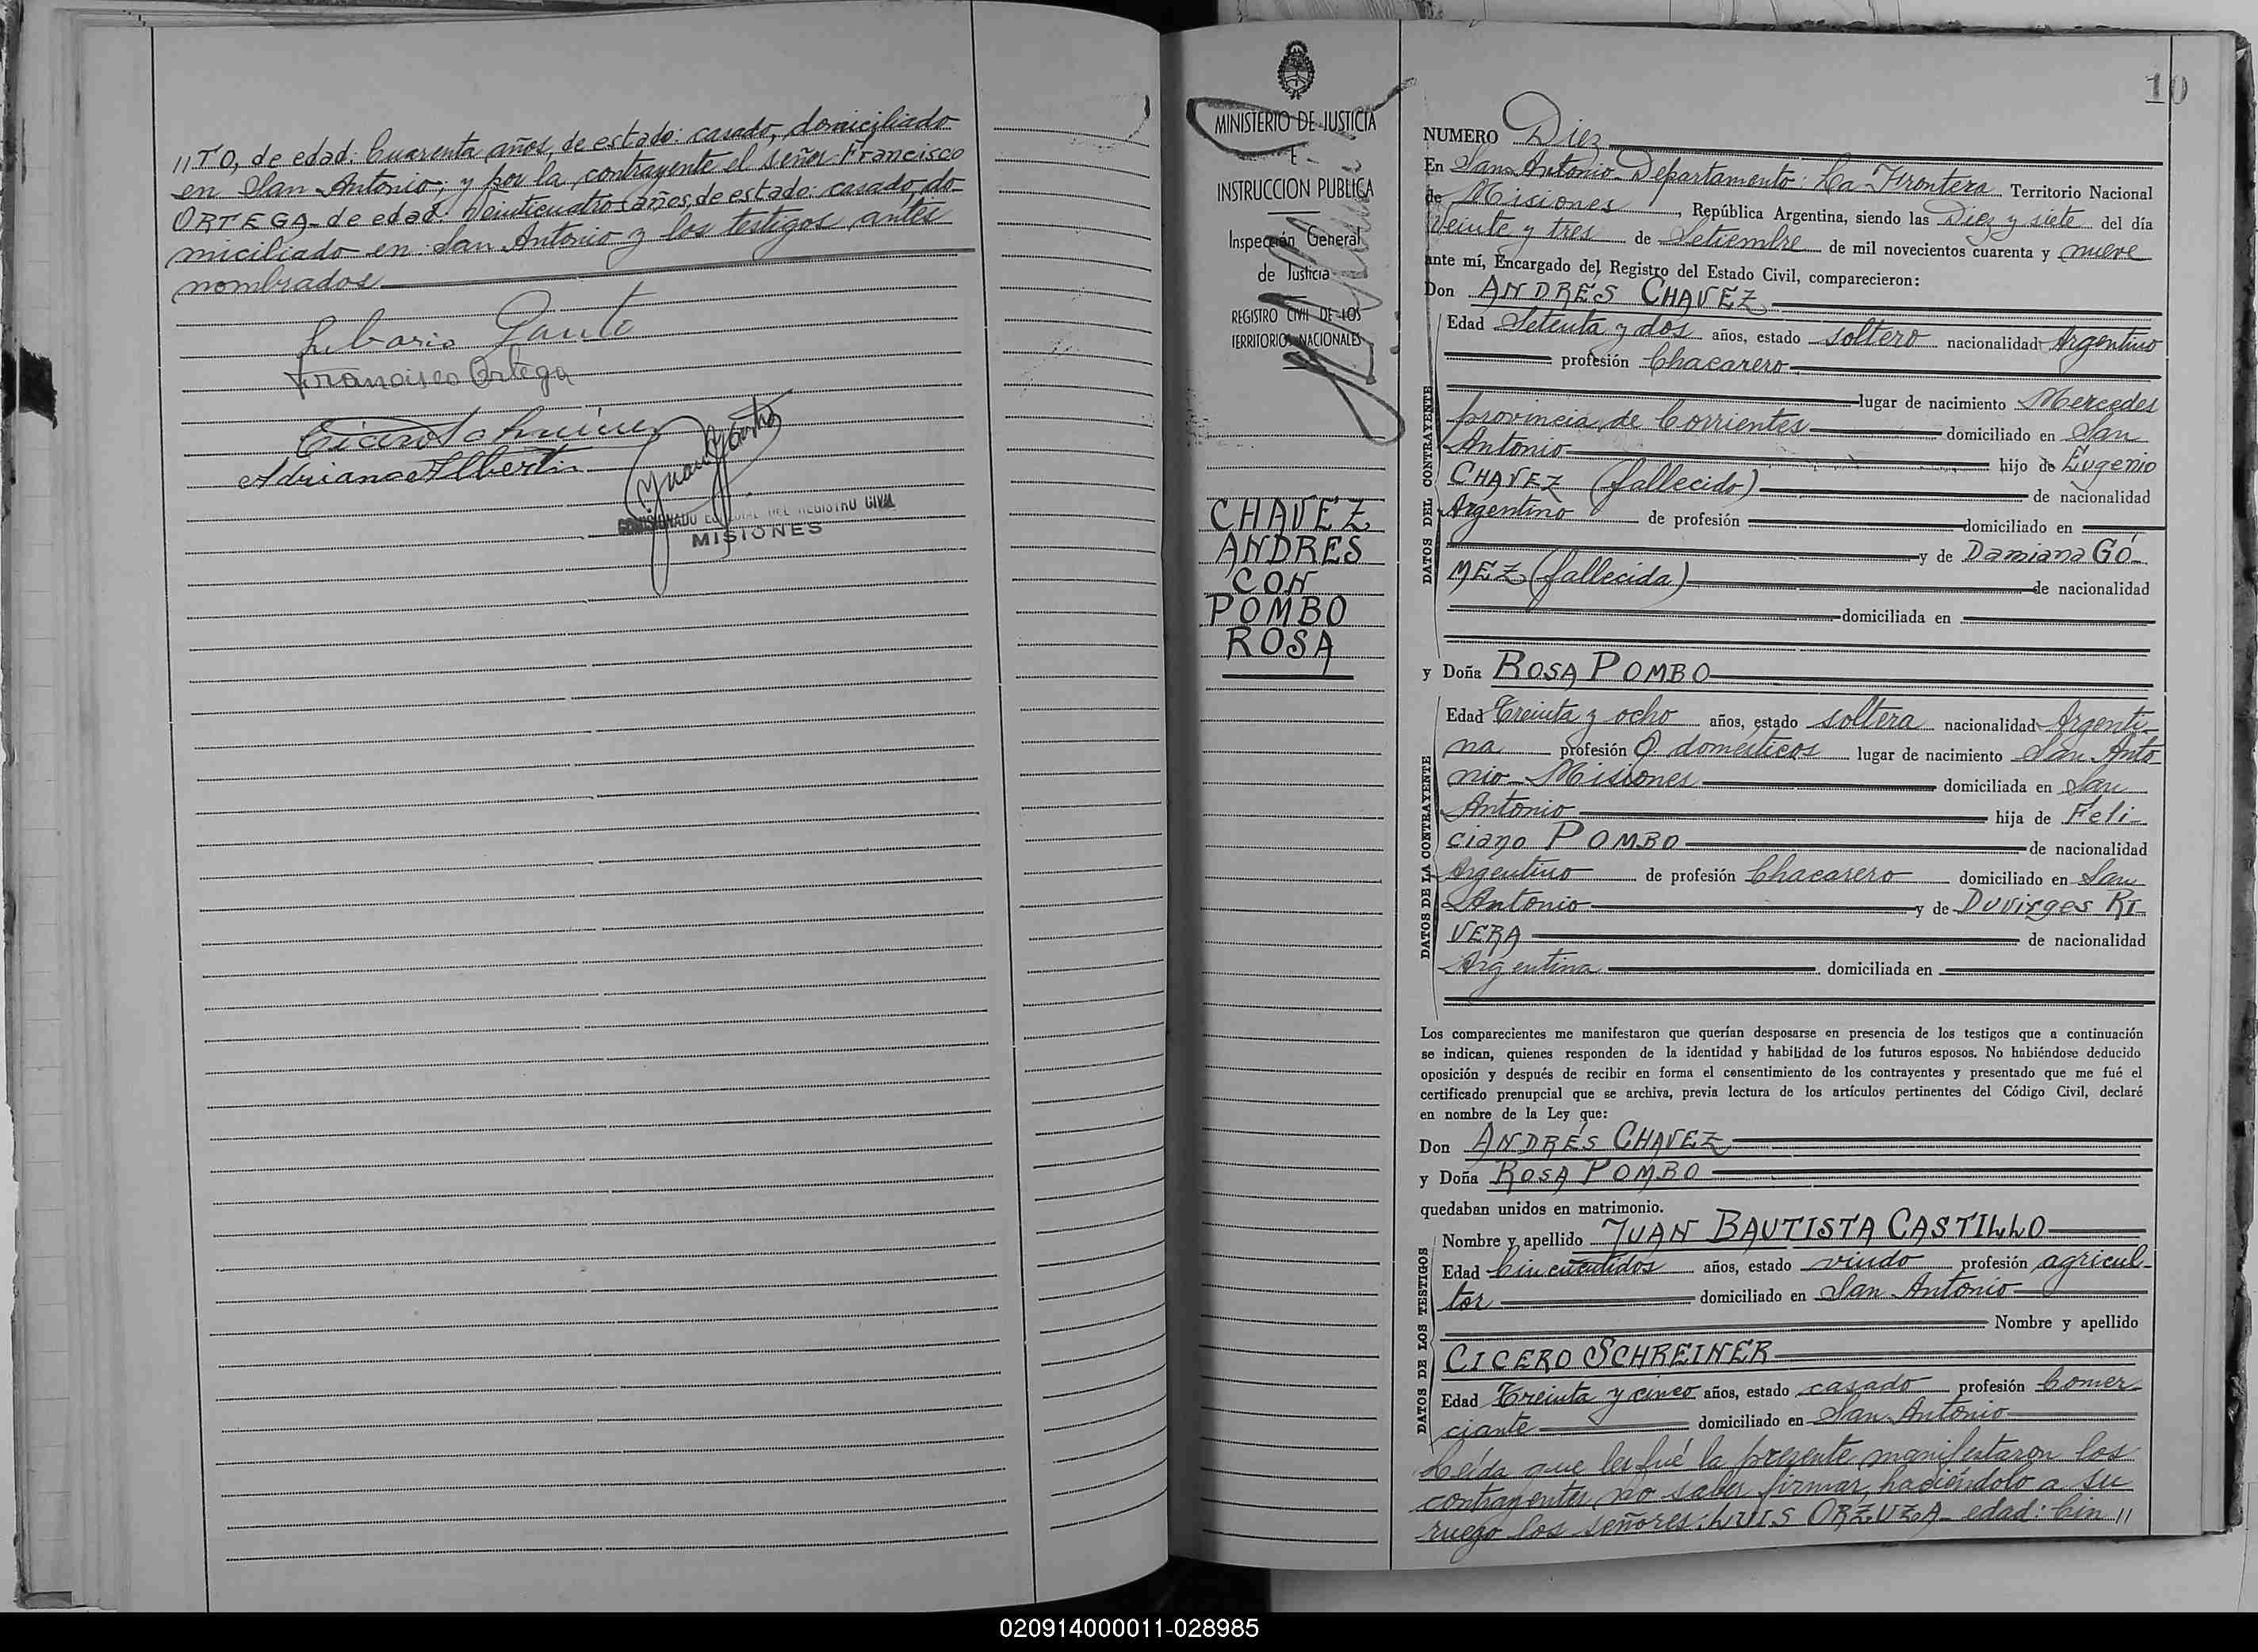 //TO, de edad: Cuarenta años, de estado: casado, domiciliado
en San Antonio; y por la contrayente el señor Francisco
ORTEGA- de edad: Veinticuatro años, de estado: casado, do-
miciliado en: San Antonio y los testigos antes
nombrados
Francisco Ortega
Adriano Alberti
COMISIONADO DEL REGISTRO CIVIL
MISIONES
MINISTERIO DE JUSTICIA
E
INSTRUCCION PUBLICA
Inspección General
de Justicia
REGISTRO CIVIL DE LOS
TERRITORIOS NACIONALES
CHAVEZ
ANDRES
CON
POMBO
ROSA
10
NUMERO Diez
En San Antonio-Departamento: La Frontera Territorio Nacional
de Misiones, República Argentina, siendo las Diez y siete del día
Veinte y tres de Setiembre de mil novecientos cuarenta y nueve
ante mí, Encargado del Registro del Estado Civil, comparecieron:
Don ANDRÉS CHAVEZ
DATOS DEL CONTRAYENTE
Edad Setenta y dos años, estado soltero nacionalidad Argentino
profesión Chacarero
lugar de nacimiento Mercedes
provincia de Corrientes domiciliado en San
Antonio hijo de Eugenio
CHAVEZ (fallecido) de nacionalidad
Argentino de profesión domiciliado en
y de Damiana GÓ-
MEZ (fallecida) de nacionalidad
domiciliada en
y Doña ROSA POMBO
DATOS DE LA CONTRAYENTE
Edad Treinta y ocho años, estado soltera nacionalidad Argenti-
na profesión Q. domésticos lugar de nacimiento San Anto-
nio-Misiones domiciliada en San
Antonio hija de Feli-
ciano POMBO de nacionalidad
Argentino de profesión Chacarero domiciliado en San
Antonio y de Duvirges RI-
VERA de nacionalidad
Argentina domiciliada en
Los comparecientes me manifestaron que querían desposarse en presencia de los testigos que a continuación
se indican, quienes responden de la identidad y habilidad de los futuros esposos. No habiéndose deducido
oposición y después de recibir en forma el consentimiento de los contrayentes y presentado que me fué el
certificado prenupcial que se archiva, previa lectura de los artículos pertinentes del Código Civil, declaré
en nombre de la Ley que:
Don ANDRÉS CHAVEZ
y Doña ROSA POMBO
quedaban unidos en matrimonio.
DATOS DE LOS TESTIGOS
Nombre y apellido JUAN BAUTISTA CASTILLO
Edad Cincuentidos años, estado viudo profesión agricul-
tor domiciliado en San Antonio
Nombre y apellido
CICERO SCHREINER
Edad Treinta y cinco años, estado casado profesión Comer-
ciante domiciliado en San Antonio
Leída que les fué la presente, manifestaron los
contrayentes no saber firmar, haciéndolo a su
ruego los señores: LUIS ORZUZA- edad: Cin //
020914000011-028985